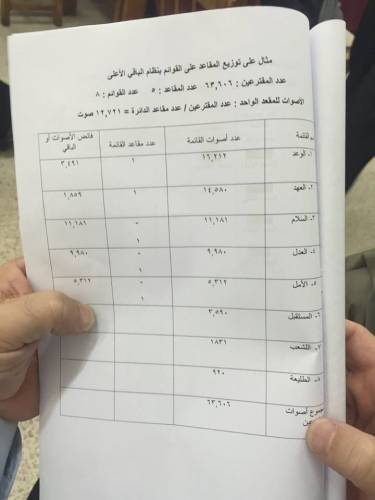 مثال على توزيع المقاعد على القوائم بنظام الباقي الأعلى
عدد المقترعين : ٦٣,٦٠٦ عدد المقاعد : ٥ عدد القوائم : ٨
الأصوات للمقعد الواحد : عدد المقترعين / عدد مقاعد الدائرة = ١٢,٧٢١ صوت
القائمة عدد أصوات القائمة عدد مقاعد القائمة فائض الأصوات أو الباقي
١- الوعد ١٦,٢١٢ ١ ٣,٤٩١
٢- العهد ١٤,٥٨٠ ١ ١,٨٥٩
٣- السلام ١١,١٨١ - ١١,١٨١
١
٤- العدل ٩,٩٨٠ - ٩,٩٨٠
١
٥- الأمل ٥,٣١٢ - ٥,٣١٢
١
٦- المستقبل ٣,٥٩٠
٧- الشعب ١٨٣١
٨- الطليعة ٩٢٠
أصوات ٦٣,٦٠٦